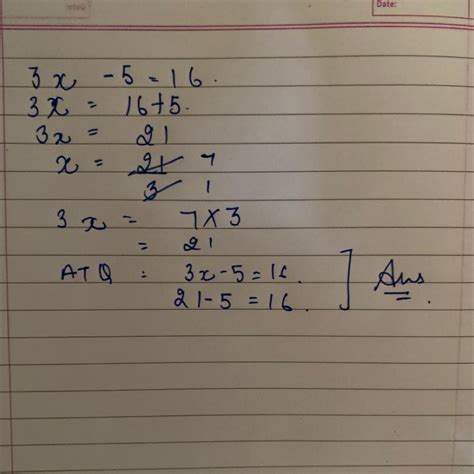 Date:
3x - 5 = 16.
3x = 16+5.
3x = 21
x = 21 7
3 1
3x = 7×3
= 21
ATQ : 3x-5=16.
21-5 = 16.
Ans.